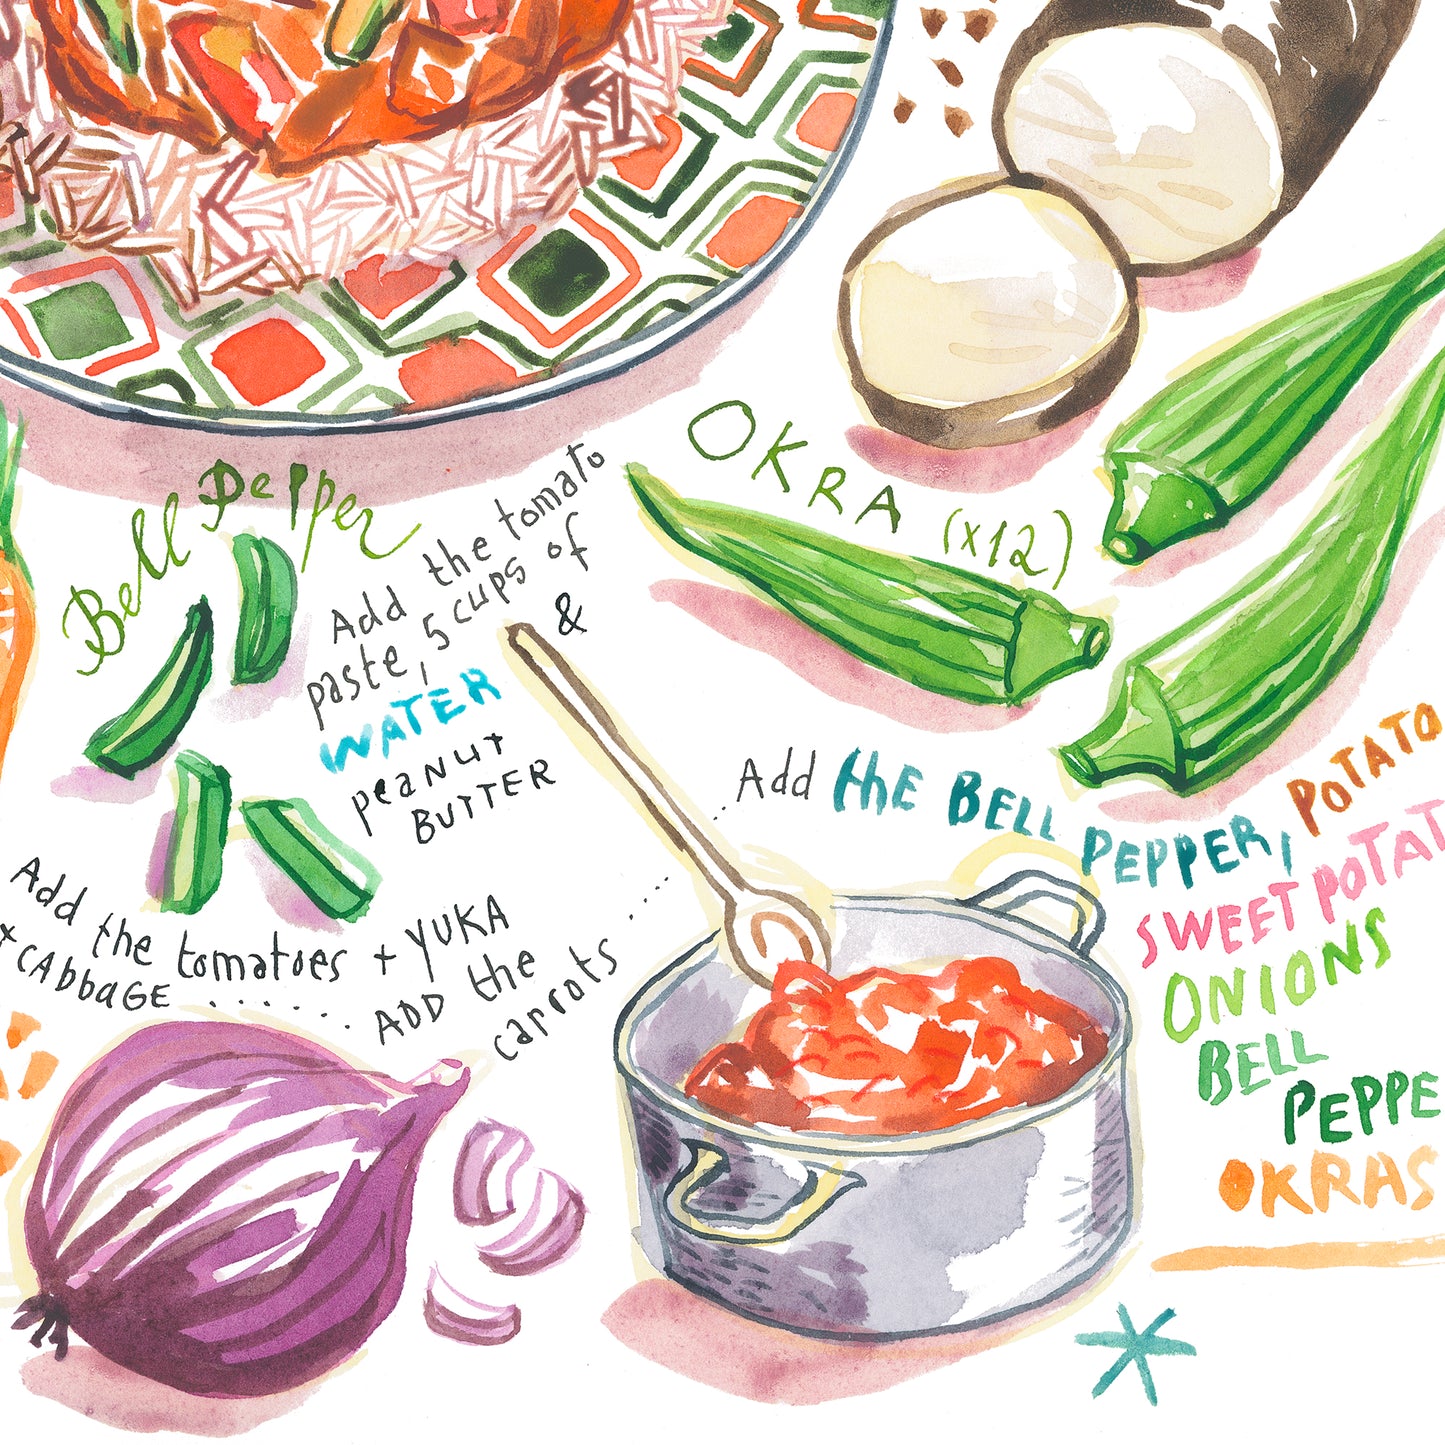 Bell Pepper
Add the tomato
paste, 5 cups of
WATER &
peanut
BUTTER
OKRA (x12)
Add the BELL PEPPER, POTATO
SWEET POTAT
ONIONS
BELL
PEPPE
OKRAS
Add the tomatoes + YUKA
+ CABBAGE ..... ADD the
carrots ... ...